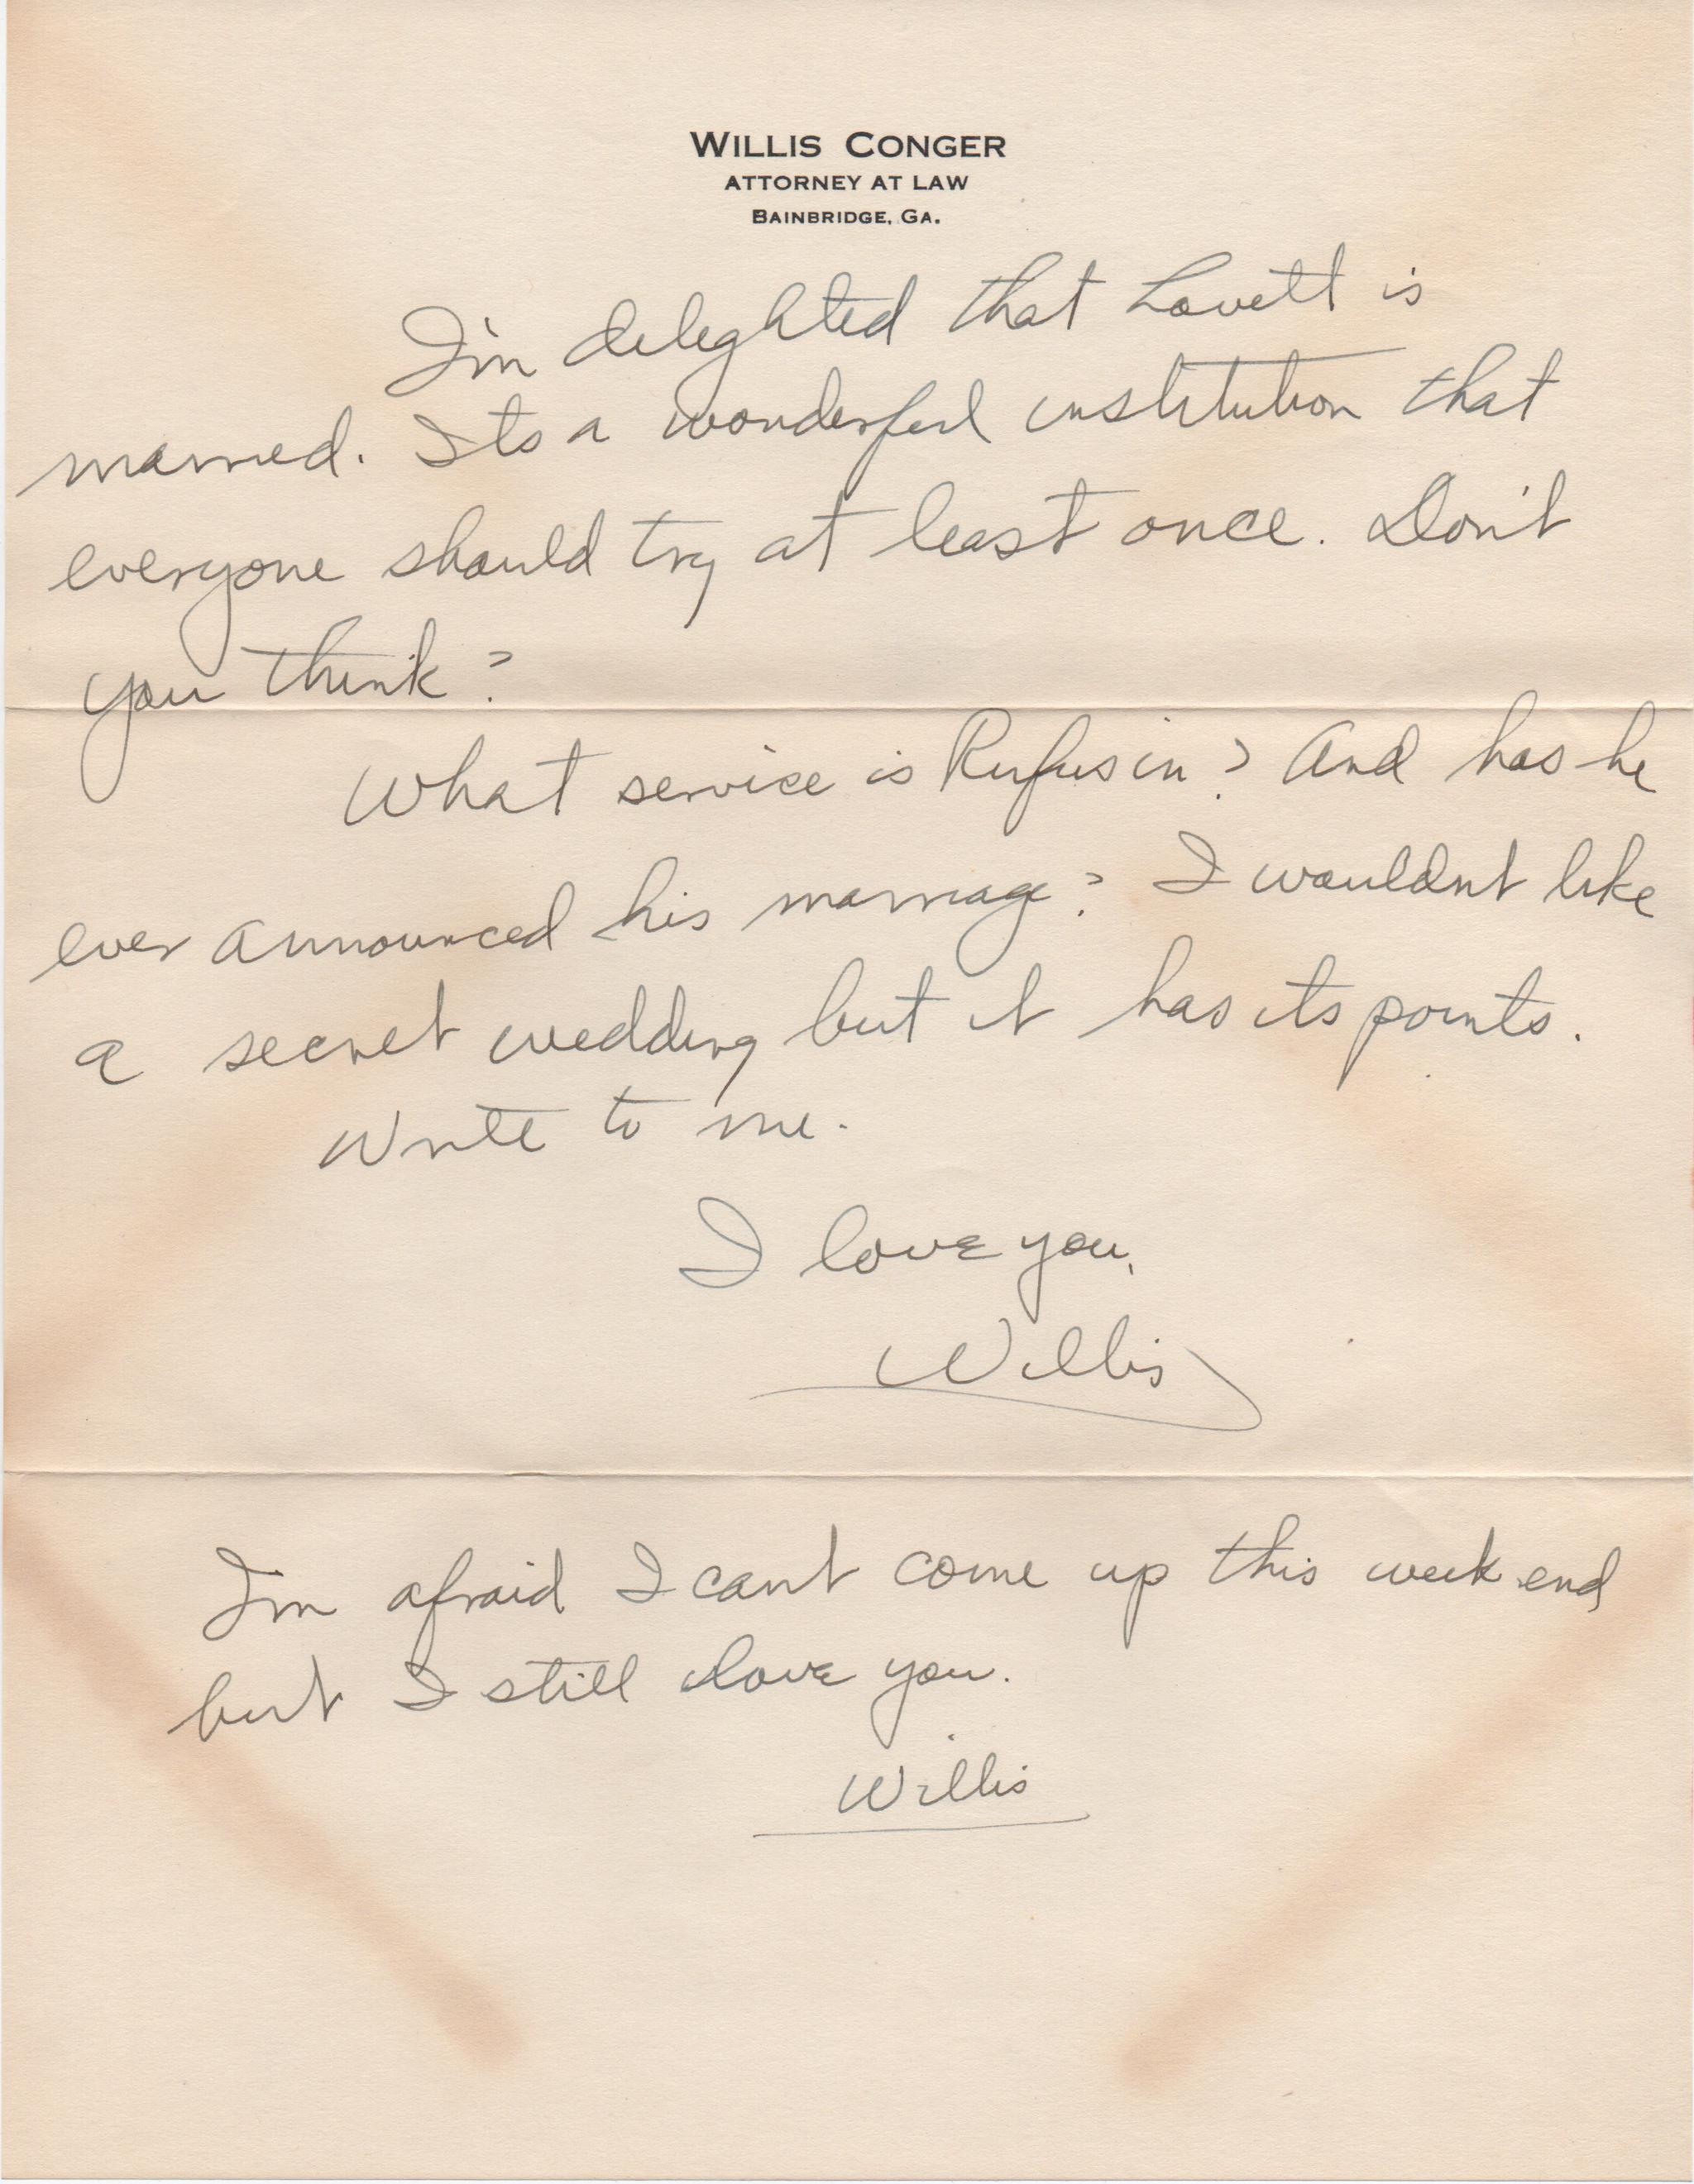 WILLIS CONGER
ATTORNEY AT LAW
BAINBRIDGE, GA.
I'm delighted that Lovett is
married. Its a wonderful institution that
everyone should try at least once. Don't
you think?
What service is Rufus in? And has he
ever announced his marriage? I wouldnt like
a secret wedding but it has its points.
Write to me.
I love you,
Willis
Im afraid I cant come up this week end
but I still love you.
Willis